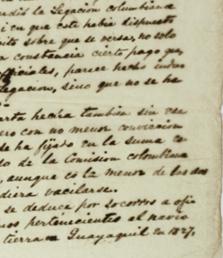 la Legacion columbiana
i en que este habia dispuesto
sobre que se versa, no solo
constancia cierto pago que
oficiales, parece hecho
Legacion, sino que no se ha
hecha tambien sin
con no menor conviccion
se ha fijado en la suma
de la Comision colombiana
, aunque es la menor de las dos
vacilarse.
se deduce por socorros a ofi
pertenecientes al navio
tierra en Guayaquil en 1827.